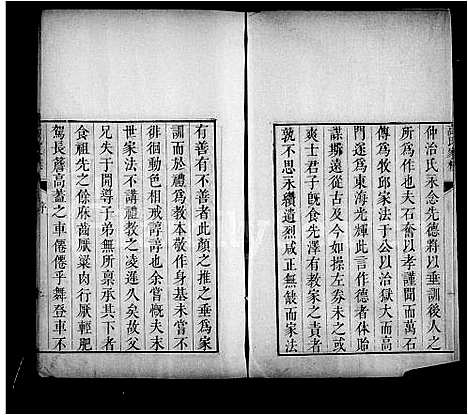 仲治氏永念先德將以垂訓後人之
所爲作也夫石奮以孝謹聞而萬石
傳爲牧邱家法于公以治獄大而高
門遂爲東海光輝此言作德者体貽
謀墉遠從古及今如操左券未之或
爽士君子旣食先澤有敎家之責者
孰不思永纘遺烈咸正無缺而家法
有善有不善者此顏之推之垂爲家
訓而於禮爲敎本敬作身基未嘗不
徘徊動色相戒諄諄也余嘗慨夫末
世家法不講禮敎之凌遲久矣故父
兄失于開導子弟無所稟承其下者
食祖先之餘庥齒厭粱肉行厭輕肥
駕長簷高蓋之車倦倦乎舞登車不